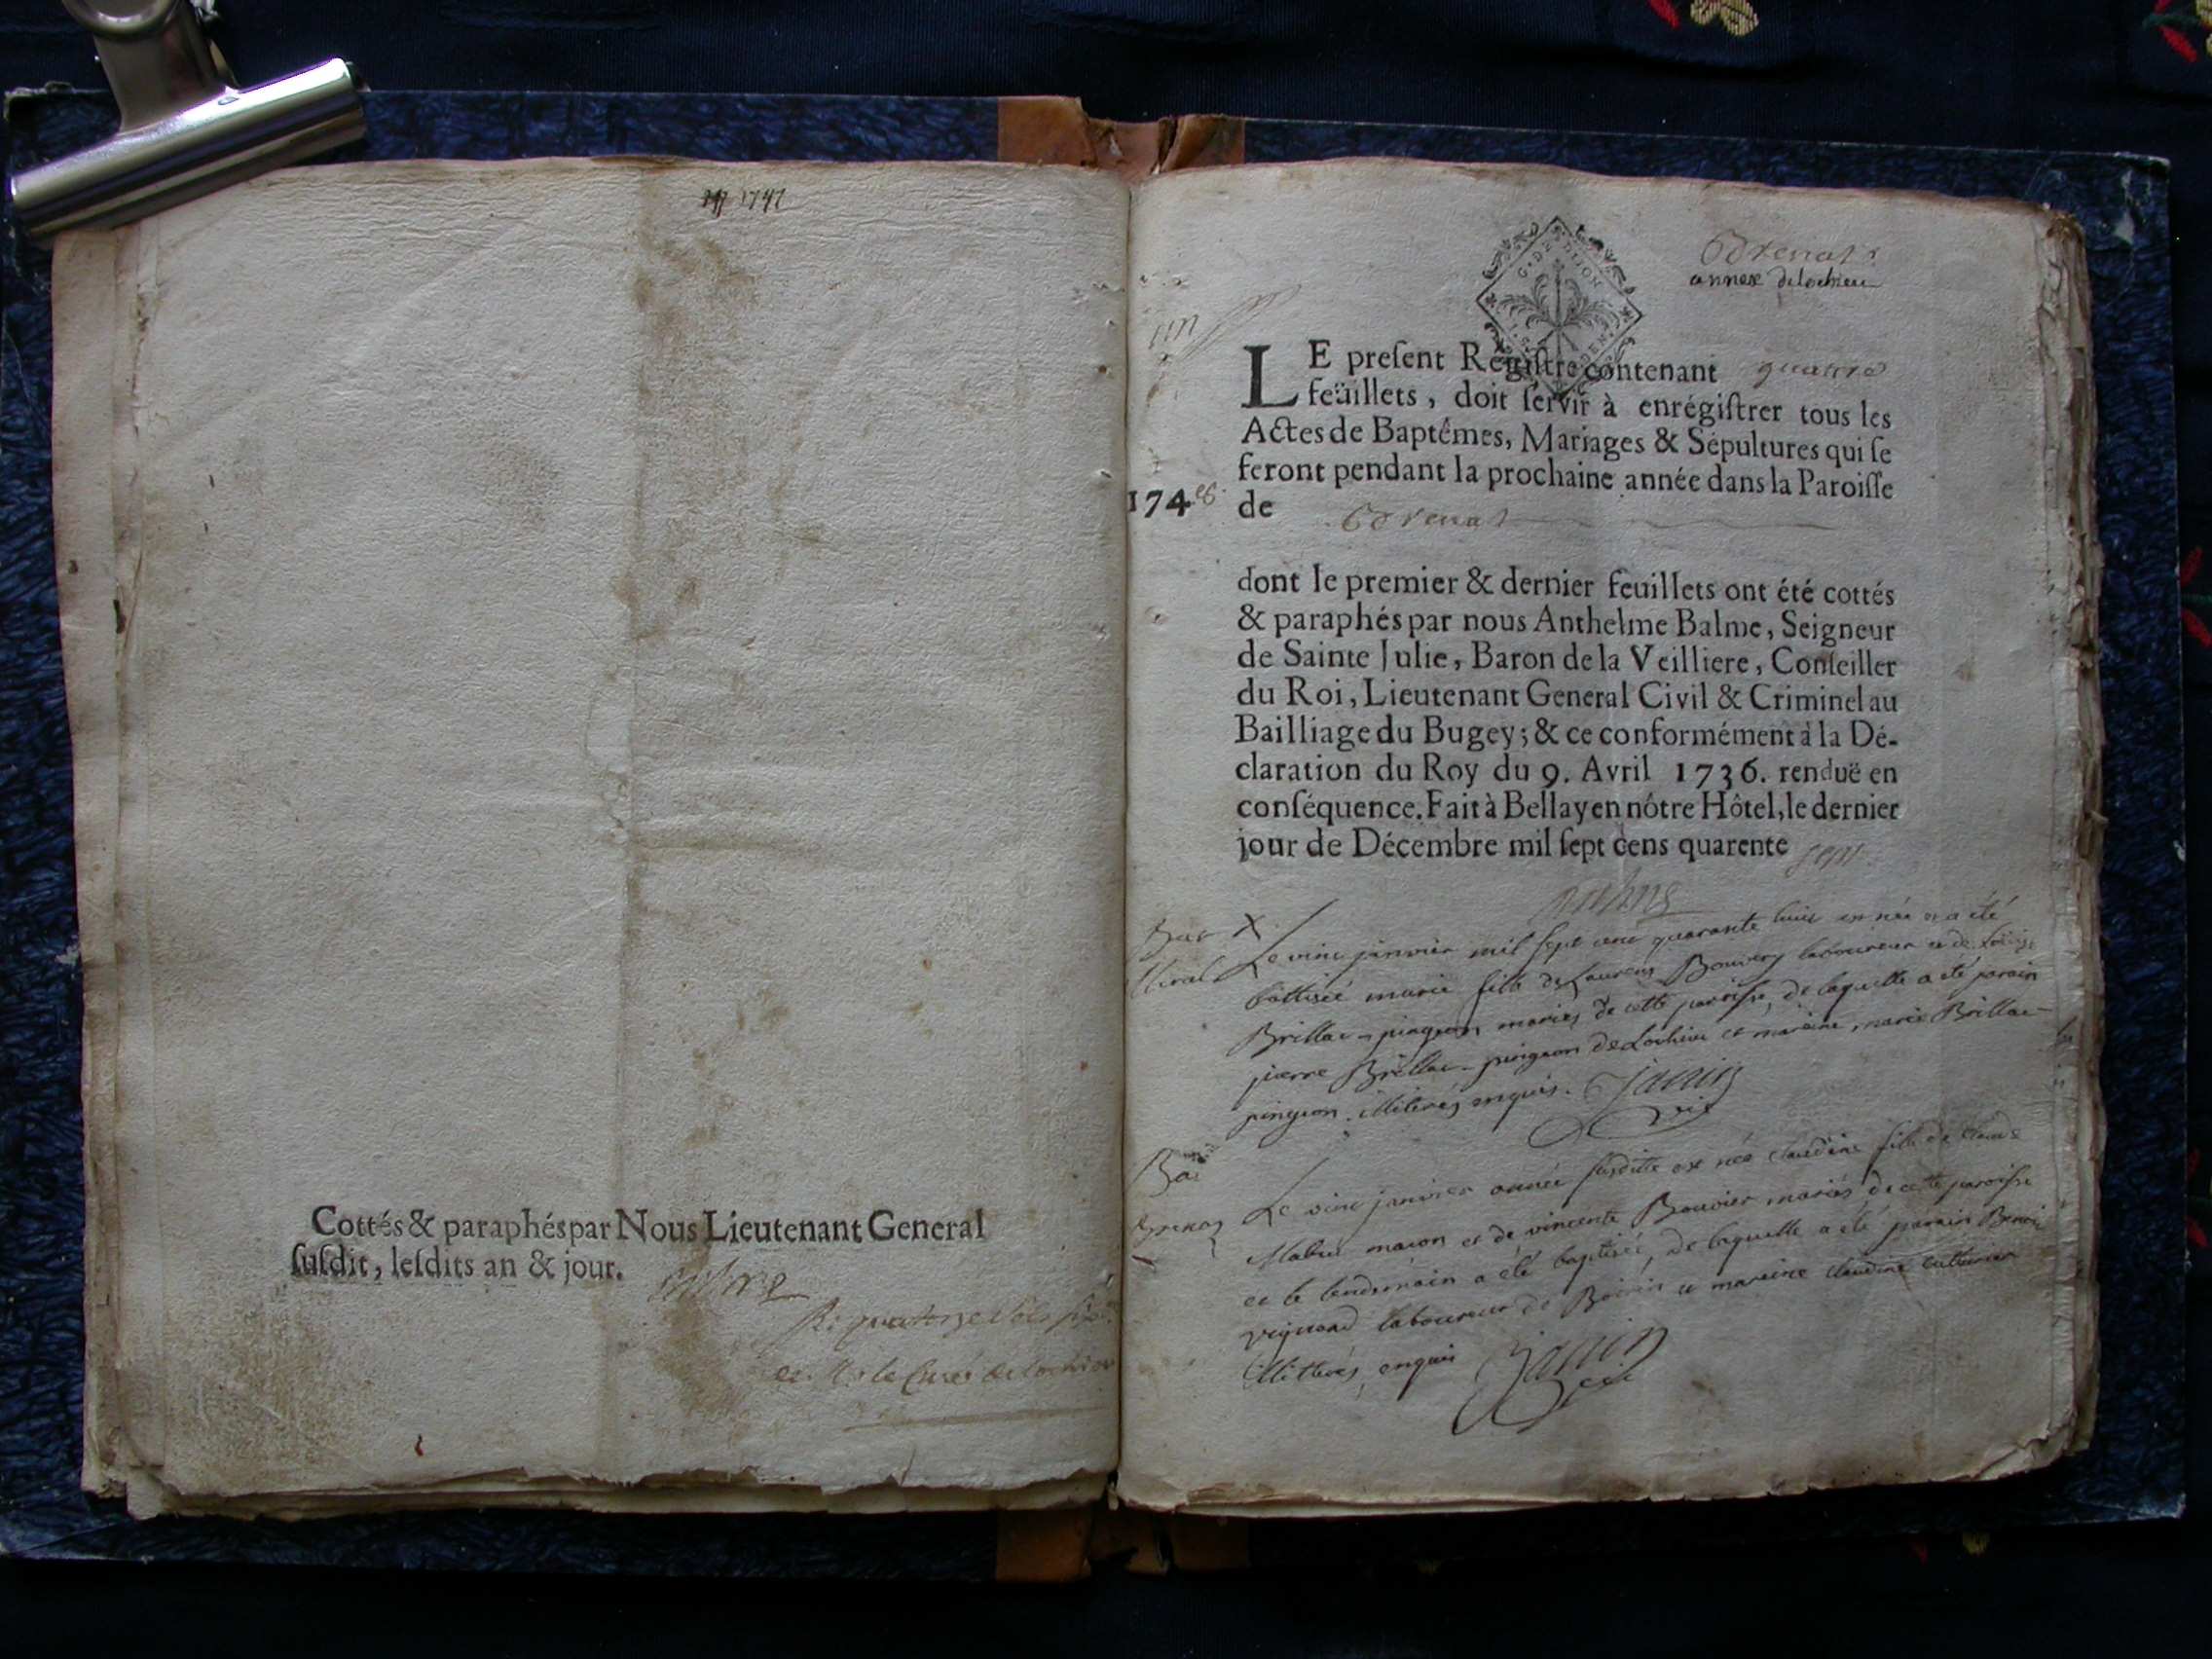 1747
Cottés & paraphés par Nous Lieutenant General
susdit, lesdits an & jour.
Balme
quatorze sols
le Curé de Lochieu
G. DE DIJON
annex de Lochieu
un
LE present Régistre contenant quatre
feüillets, doit servir à enrégistrer tous les
Actes de Baptêmes, Mariages & Sépultures qui se
feront pendant la prochaine année dans la Paroisse
1748 de
dont le premier & dernier feuillets ont été cottés
& paraphés par nous Anthelme Balme, Seigneur
de Sainte Julie, Baron de la Veilliere, Conseiller
du Roi, Lieutenant General Civil & Criminel au
Bailliage du Bugey; & ce conformément à la Dé-
claration du Roy du 9. Avril 1736. renduë en
conséquence. Fait à Bellay en nôtre Hôtel, le dernier
jour de Décembre mil sept cens quarente sept
Balme
Le vint janvier mil sept cent quarante huit est née et a été
battisée marie fille de Laurens Bouvery laboureur et de
Brillat-pingeon mariés de cette paroisse, de laquelle a été parain
pierre Brillat-pingeon de Lochieu et mareine marie Brillat-
pingeon. illiterés enquis. Janin
Le vint janvier année susditte est née claudine fille de claude
maçon et de vincente Bouvier mariés de cette paroisse
et le lendemain a été baptisée, de laquelle a été parain Benoit
laboureur de et mareine claudine
illitterés, enquis Janin